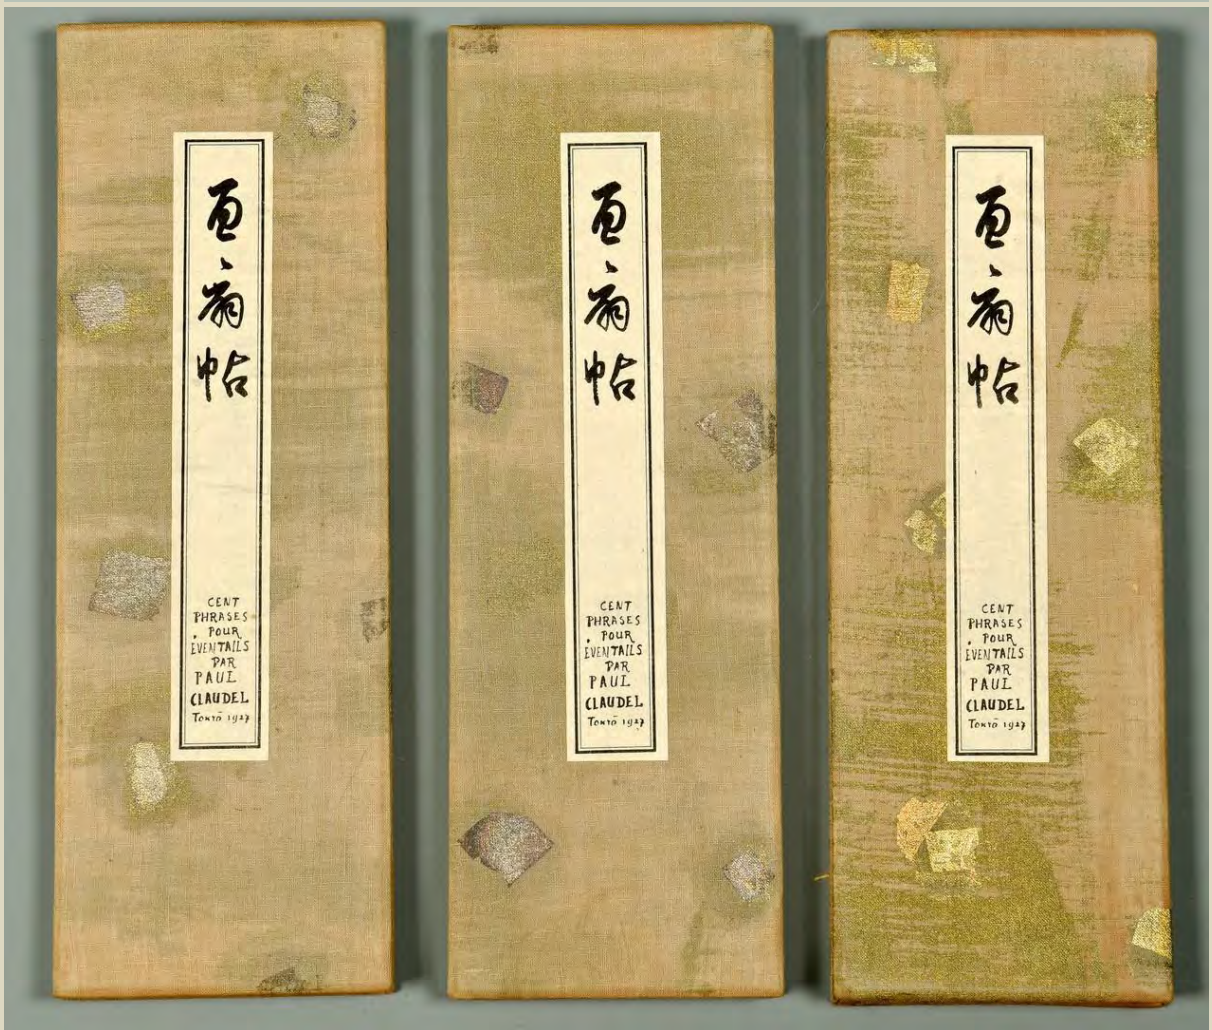 百扇帖
CENT
PHRASES
POUR
ÉVENTAILS
PAR
PAUL
CLAUDEL
Tokyō 1927
百扇帖
CENT
PHRASES
POUR
ÉVENTAILS
PAR
PAUL
CLAUDEL
Tokyō 1927
百扇帖
CENT
PHRASES
POUR
ÉVENTAILS
PAR
PAUL
CLAUDEL
Tokyō 1927